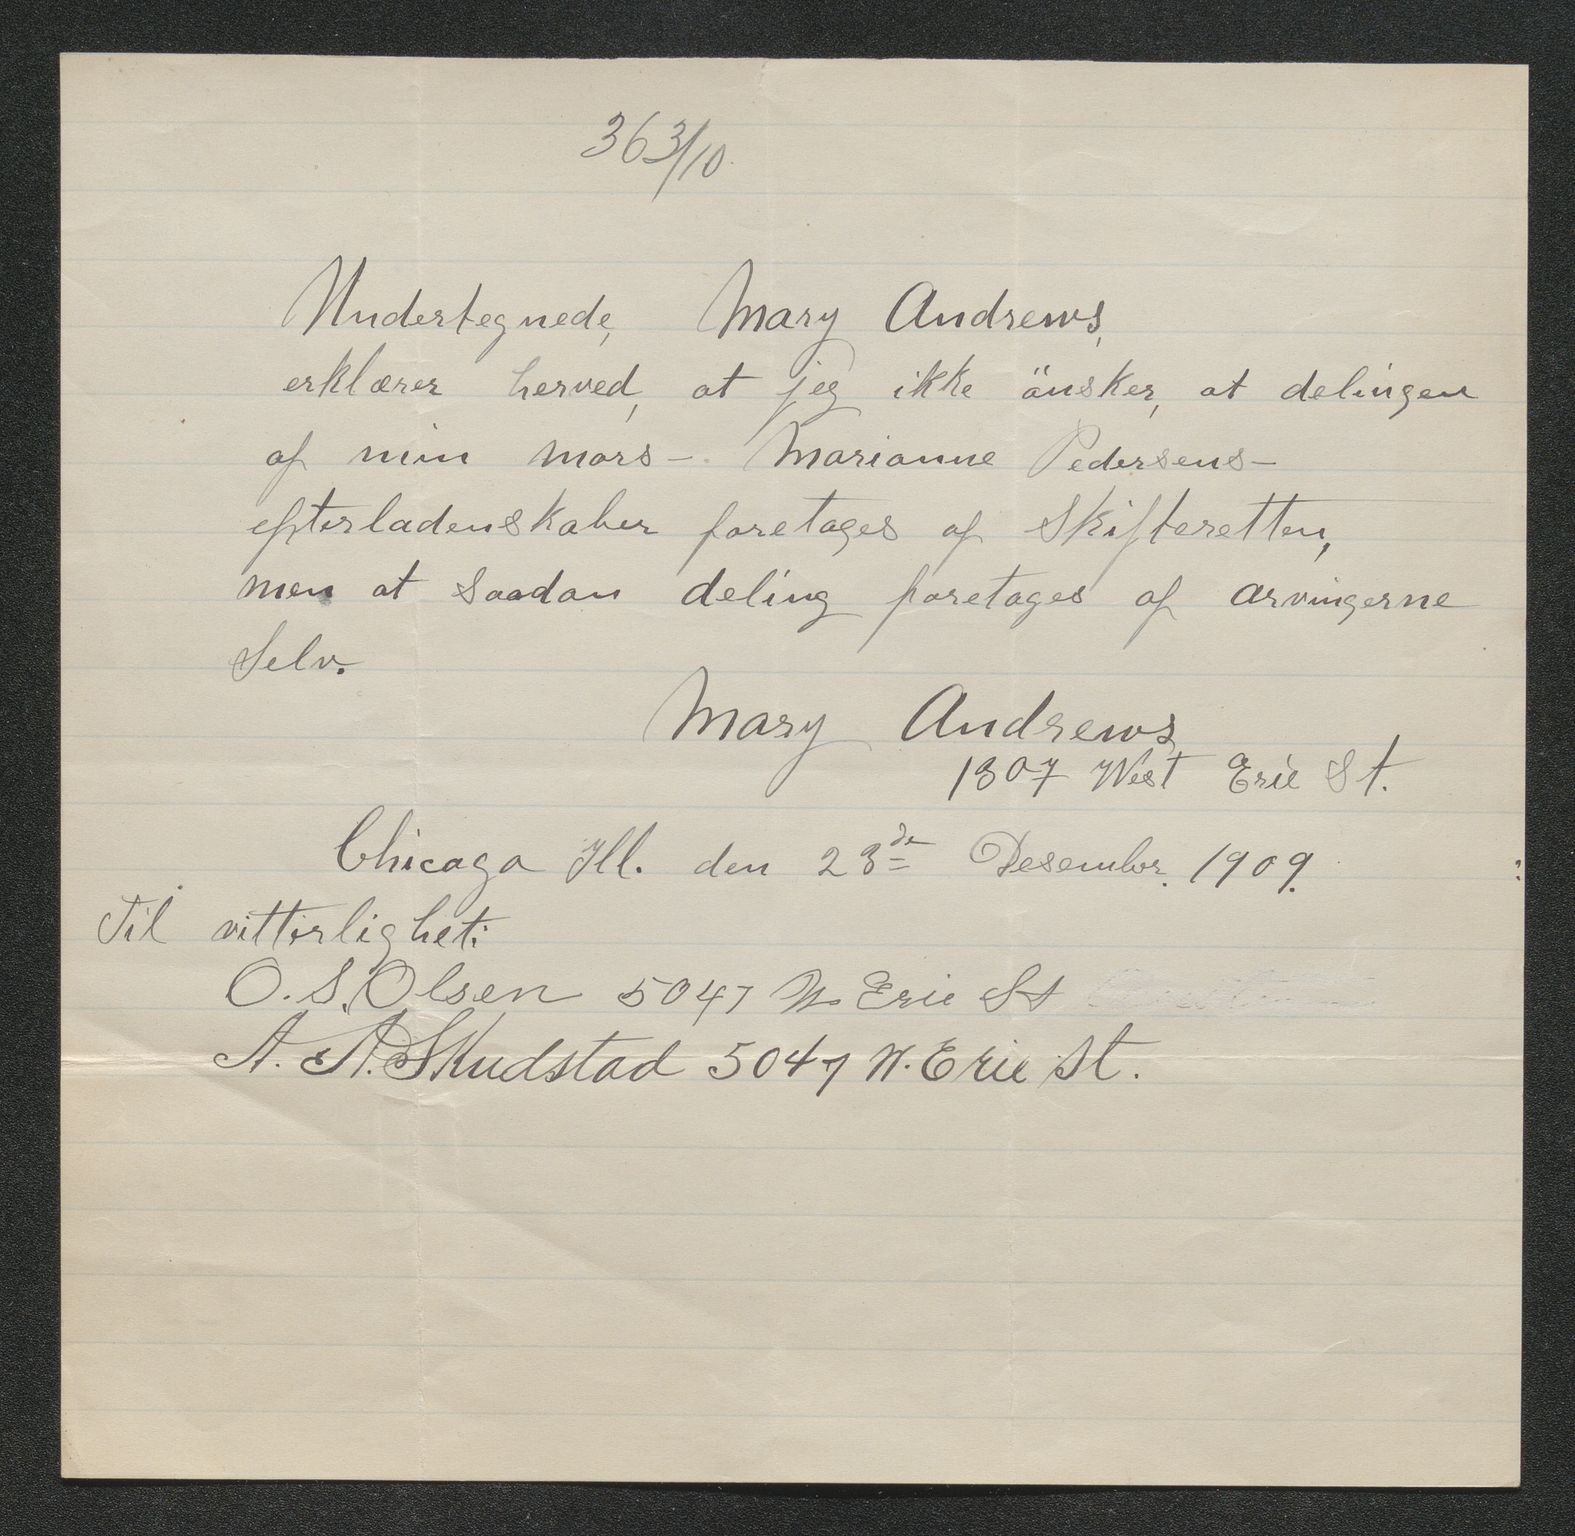 363/10.
Undertegnede, Mary Andrews,
erklærer herved, at jeg ikke önsker, at delingen
af min mors - Marianne Pedersens -
efterladenskaber foretages af Skifteretten,
men at saadan deling foretages af arvingerne
Selv.
Mary Andrews
1307 West Erie St.
Chicago Ill. den 23de Desember. 1909.
Til vitterlighet:
O. S. Olsen 5047 W Erie St
A. A. Skudstad 5047 W. Erie St.